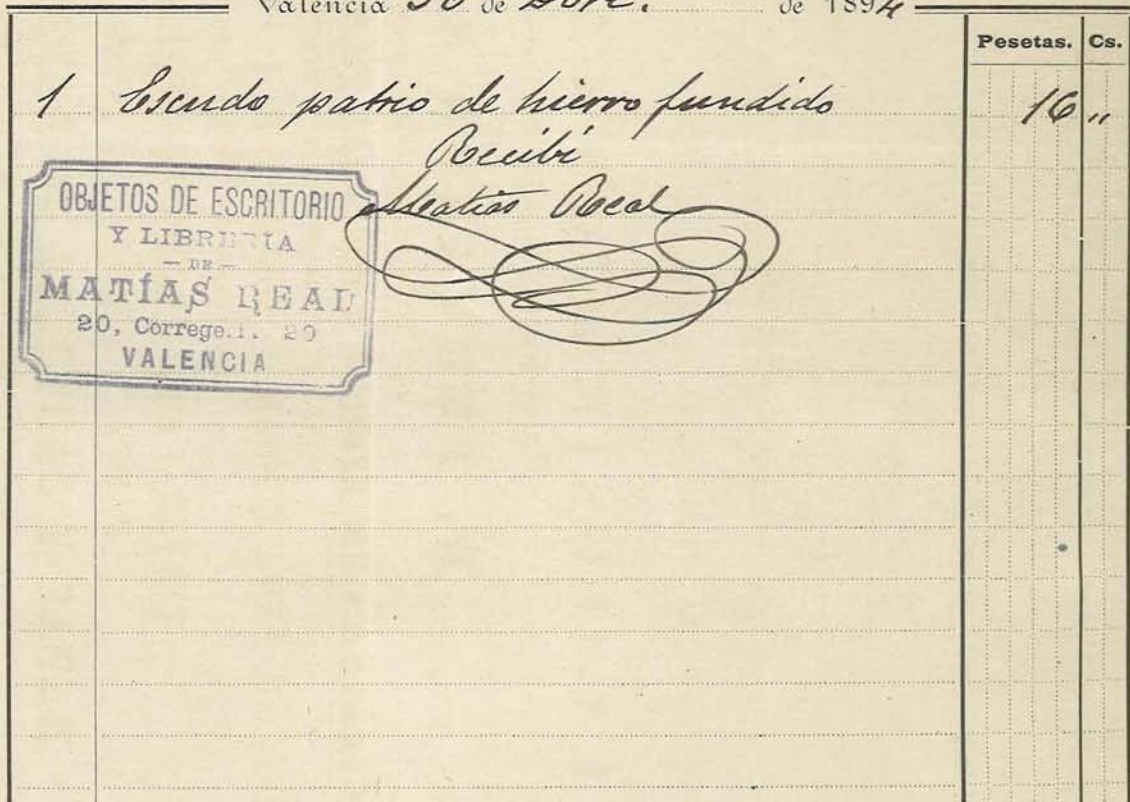 Valencia 30 de de 1894
Pesetas. Cs.
1 Escudo patrio de hierro fundido 16 „
Recibí
Matías Real
OBJETOS DE ESCRITORIO
Y LIBRERÍA
— DE —
MATÍAS REAL
20, 20
VALENCIA